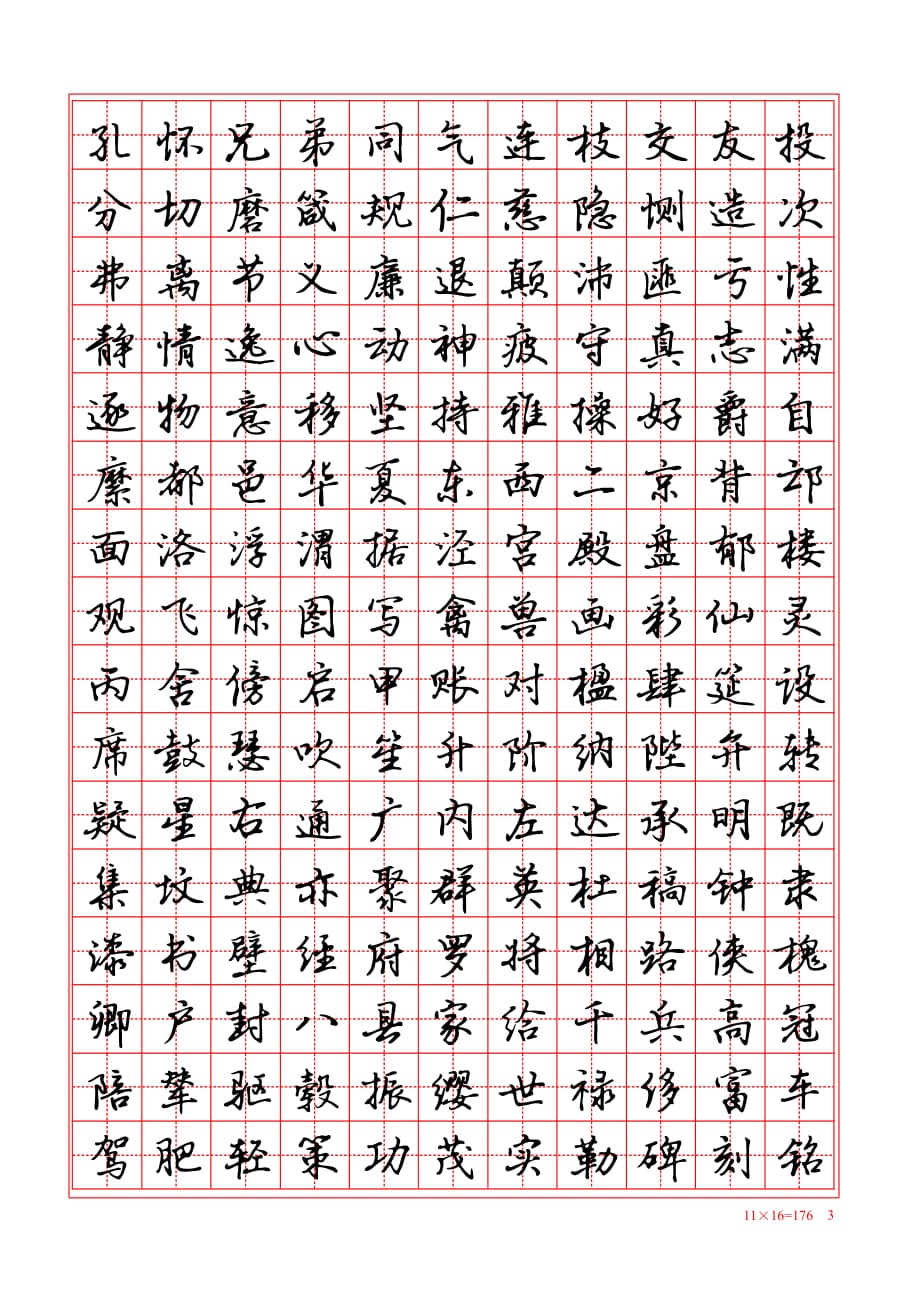 孔怀兄弟同气连枝交友投
分切磨箴规仁慈隐恻造次
弗离节义廉退颠沛匪亏性
静情逸心动神疲守真志满
逐物意移坚持雅操好爵自
縻都邑华夏东西二京背邙
面洛浮渭据泾宫殿盘郁楼
观飞惊图写禽兽画彩仙灵
丙舍傍启甲账对楹肆筵设
席鼓瑟吹笙升阶纳陛弁转
疑星右通广内左达承明既
集坟典亦聚群英杜稿钟隶
漆书壁经府罗将相路侠槐
卿户封八县家给千兵高冠
陪辇驱毂振缨世禄侈富车
驾肥轻策功茂实勒碑刻铭
11×16=176 3